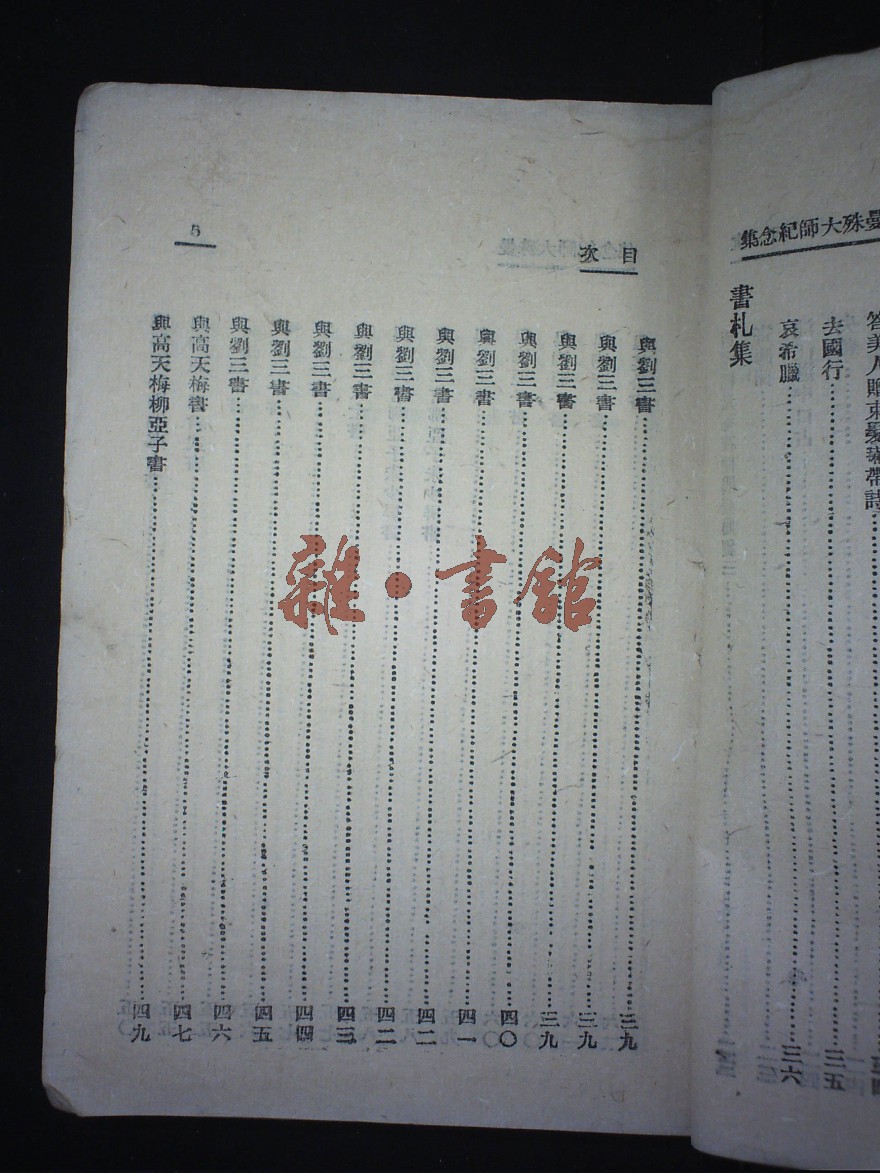 曼殊大師紀念集
答美人贈束髮帶詩
去國行……三五
哀希臘……三六
書札集
目次
5
與劉三書……三九
與劉三書……三九
與劉三書……三九
與劉三書……四〇
與劉三書……四一
與劉三書……四二
與劉三書……四二
與劉三書……四三
與劉三書……四四
與劉三書……四五
與劉三書……四六
與高天梅書……四七
與高天梅柳亞子書……四九
雜·書館